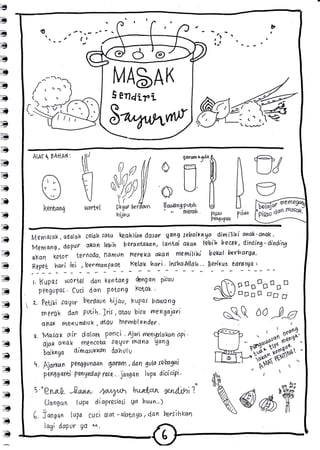 MASAK
Sendiri
Sayurmu
ALAT & BAHAN:
garam & gula
kentang
wortel
sayur berdaun
hijau
Bawang putih
merah
pisau
pengupas
pisau
belajar memegang
pisau dan masak
Memasak, adalah salah satu keahlian dasar yang sebaiknya dimiliki anak-anak.
Memang, dapur akan lebih berantakan, lantai akan lebih becek, dinding-dinding
akan kotor ternoda, namun mereka akan memiliki bekal berharga.
Repot hari ini, bermanfaat kelak hari. InsyaAllah.. Berikut caranya:
1. Kupas wortel dan kentang dengan pisau
pengupas. Cuci dan potong kotak.
2. Petiki sayur berdaun hijau, kupas bawang
merah dan putih. Iris, atau bisa mengajari
anak menumbuk, atau memblender.
3. Masak air dalam panci. Ajari menyalakan api.
ajak anak mencoba sayur mana yang
baiknya dimasukkan dahulu
4. Ajarkan penggunaan garam, dan gula sebagai
pengganti penyedap rasa.. jangan lupa dicicipi.
5. "Enak Kaan, sayur buatan sendiri?"
(Jangan lupa diapresiasi ya buun..)
6. Jangan lupa cuci alat-alatnya, dan bersihkan
lagi dapur ya ^^.
Pengawasan orang
tua & tips menya-
lakan kompor,
AMAT PENTING!
6